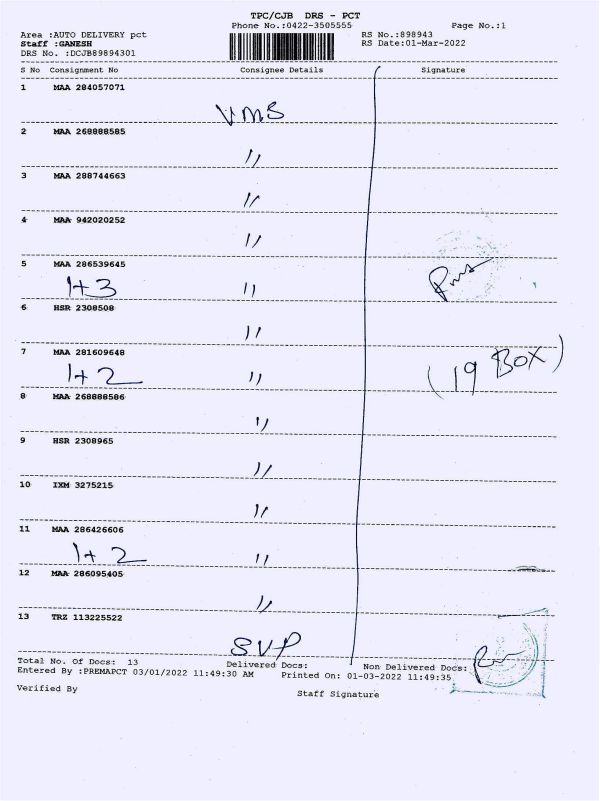 TPC/CJB DRS - PCT
Phone No.:0422-3505555 Page No.:1
Area :AUTO DELIVERY pct RS No.:898943
Staff :GANESH RS Date:01-Mar-2022
DRS No. :DCJB89894301
S No Consignment No Consignee Details Signature
1 MAA 284057071
VMS
2 MAA 268888585
〃
3 MAA 288744663
〃
4 MAA 942020252
〃
5 MAA 286539645
1+3 〃
6 HSR 2308508
〃
7 MAA 281609648
1+2 〃
(19 BOX)
8 MAA 268888586
〃
9 HSR 2308965
〃
10 IXM 3275215
〃
11 MAA 286426606
1+2 〃
12 MAA 286095405
〃
13 TRZ 113225522
SVP
Total No. Of Docs: 13 Delivered Docs: Non Delivered Docs:
Entered By :PREMAPCT 03/01/2022 11:49:30 AM Printed On: 01-03-2022 11:49:35
Verified By Staff Signature